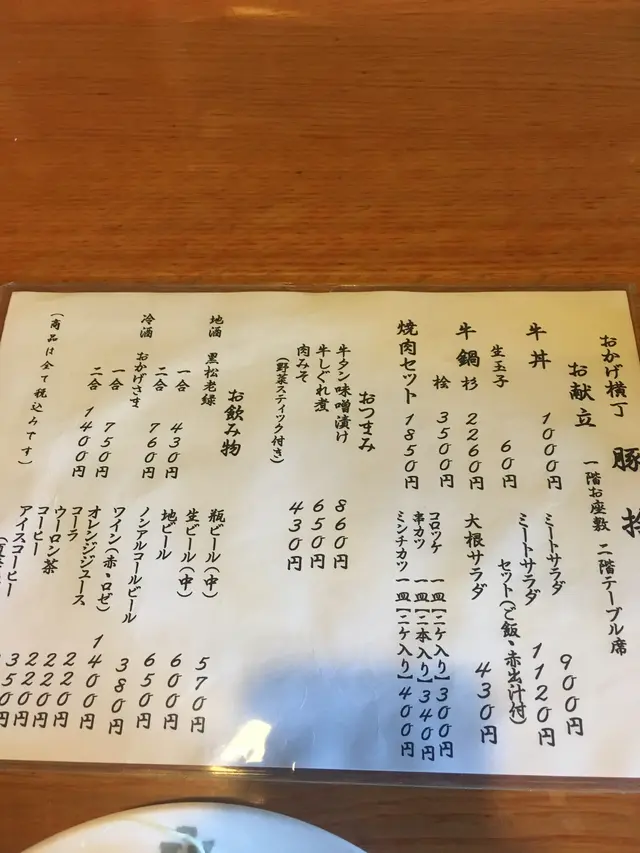 おかげ横丁 豚捨
お献立
一階お座敷 二階テーブル席
牛丼 1000円
生玉子 60円
牛鍋 杉 2260円
桧 3500円
焼肉セット 1850円
ミートサラダ 900円
ミートサラダセット(ご飯・赤出汁付) 1120円
大根サラダ 430円
コロッケ 一皿【二ケ入り】300円
串カツ 一皿【二本入り】340円
ミンチカツ 一皿【二ケ入り】400円
おつまみ
牛タン味噌漬け 860円
牛しぐれ煮 650円
肉みそ 430円
(野菜スティック付き)
お飲み物
地酒 黒松老緑
一合 430円
二合 760円
冷酒 おかげさま
一合 750円
二合 1400円
(商品は全て税込みです)
瓶ビール(中) 570円
生ビール(中) 600円
地ビール 650円
ノンアルコールビール 380円
ワイン(赤・ロゼ) 1400円
オレンジジュース 220円
コーラ 220円
ウーロン茶 220円
コーヒー 350円
アイスコーヒー